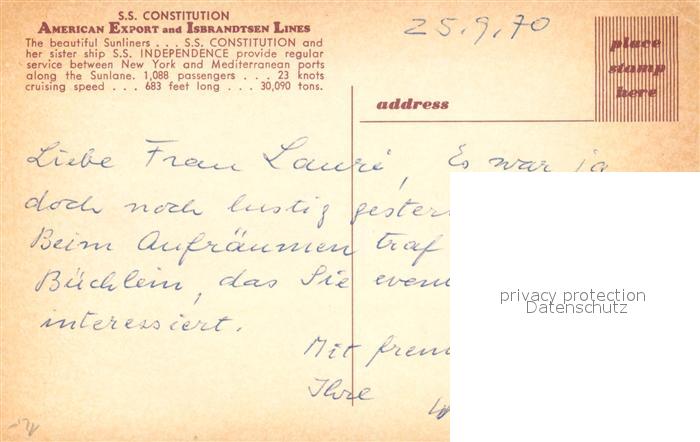 S.S. CONSTITUTION
AMERICAN EXPORT and ISBRANDTSEN LINES
The beautiful Sunliners . . . S.S. CONSTITUTION and
her sister ship S.S. INDEPENDENCE provide regular
service between New York and Mediterranean ports
along the Sunlane. 1,088 passengers . . . 23 knots
cruising speed . . . 683 feet long . . . 30,090 tons.
25.9.70
place
stamp
here
address
Liebe Frau Lauré, Es war ja
doch noch lustig gester
Beim Aufräumen traf
Büchlein, das Sie even
interessiert.
Mit freun
Ihre
privacy protection
Datenschutz